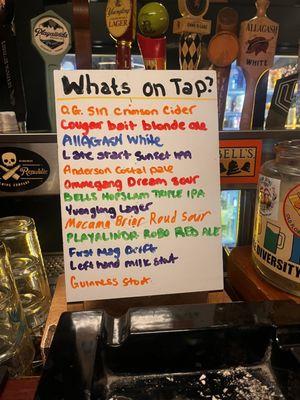 Playalinda
Yuengling
ALLAGASH
WHITE
Whats on Tap?
O.G. Sin Crimson Cider
Cougar bait blonde ale
Allagash White
Late start Sunset IPA
Anderson Costal pale
Ommegang Dream sour
BELLS HOPSLAM TRIPLE IPA
Yuengling Lager
Mocama Briar Roud Sour
PLAYALINDA ROBO RED ALE
First Mag Drift
Left hand milk stout
Guinness Stout
BELL'S
Republic
BREWING CO
DIVERSITY